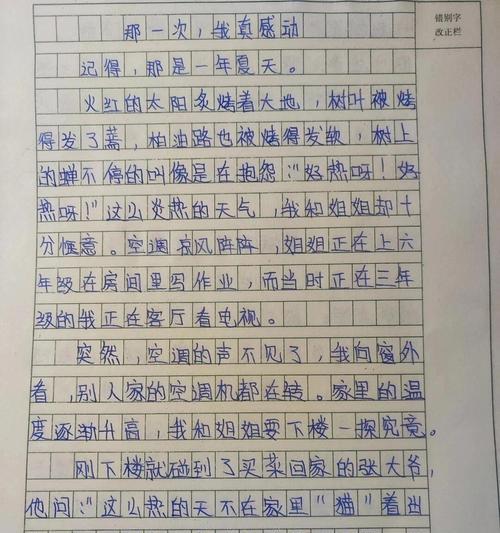 错别字
改正栏
那一次，我真感动
记得，那是一年夏天。
火红的太阳炙烤着大地，树叶被烤
得发了蔫，柏油路也被烤得发软，树上
的蝉不停的叫像是在抱怨：“好热呀！好
热呀！”这么炎热的天气，我和姐姐却十
分惬意。空调凉风阵阵，姐姐正在上六
年级在房间里写作业，而当时正在三年
级的我正在客厅看电视。
突然，空调的声不见了，我向窗外
看，别人家的空调机都在转。家里的温
度逐渐升高，我和姐姐要下楼一探究竟。
刚下楼就碰到了买菜回家的张大爷，
他问：“这么热的天不在家里“猫”着出